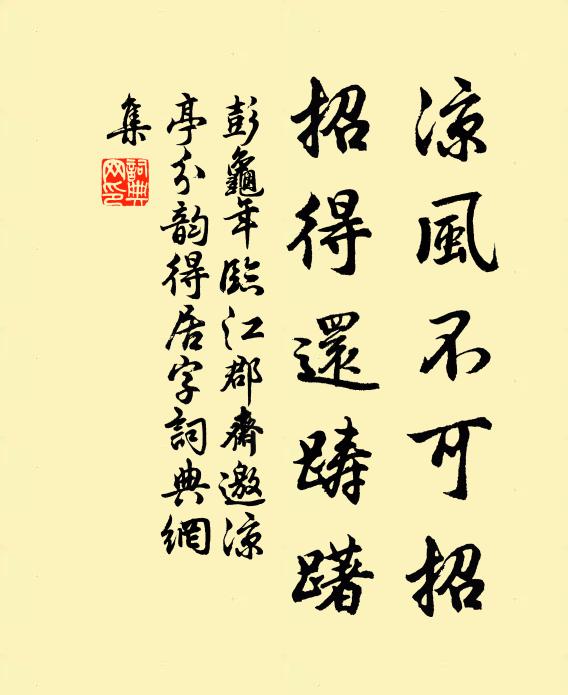 涼風不可招
招得還躊躇
彭龜年臨江郡齋邀涼
亭分韵得居字詞典網
集
詞典
网印